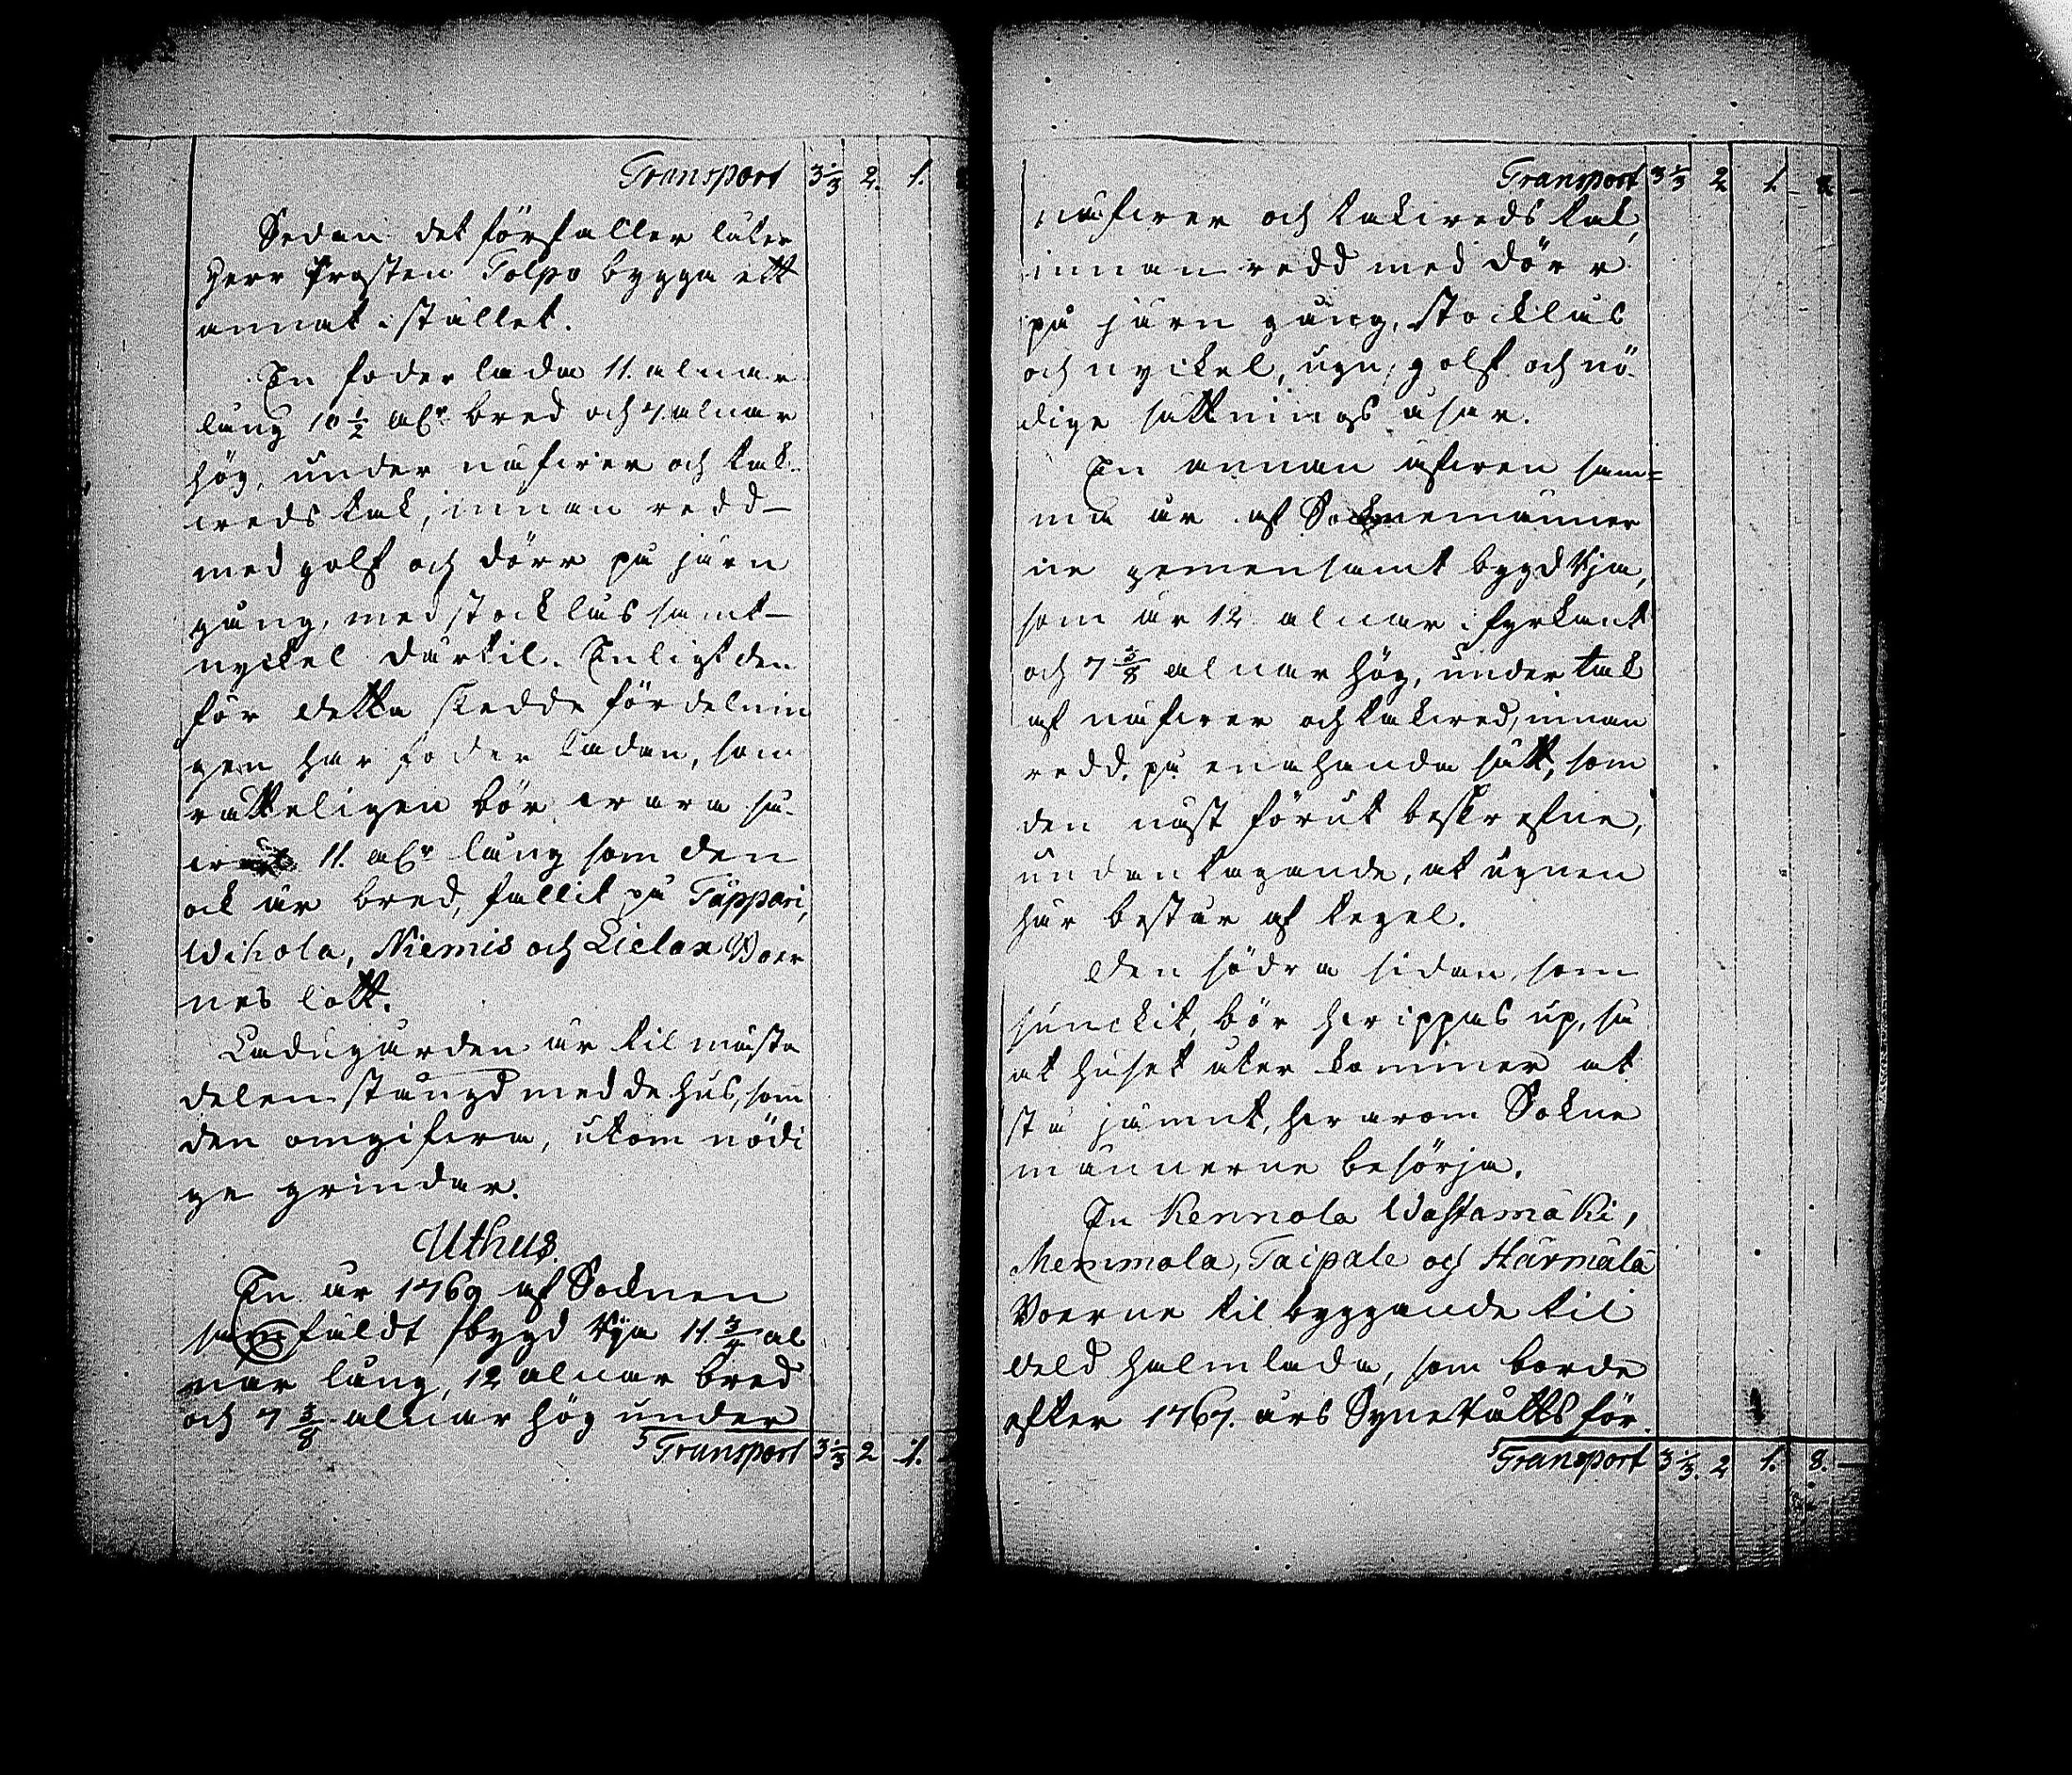 Transport 3 1/3 2. 1.
Sedan det förfaller låter
Herr Prosten Polpo bygga ett
annat i stället.
En foder lada 11. alnar
lång 10 1/2 alr bred och 7 alnar
hög, under näfver och tak-
veds tak, innan redd
med golf och dörr på järn
gång, med stocklås samt
nyckel därtil. Enligt den
för detta skedde fördelnin
gen har foder ladan, som
rätteligen bör vara så
11. alr lång som den
ock är bred, fallit på Täppari,
Wihola, Niemis och Lielax Boer
nes lott.
Ladugården är til mästa
delen stängd med de hus, som
den omgifva, utom nödi
ge grindar.
Uthus.
En år 1769 af Socknen
samfäldt bygd Ria 11 3/4 al
nar lång, 12 alnar bred
och 7 3/8 alnar hög under
Transport 3 1/3 2 1.
Transport 3 1/3 2 1.
näfver och takveds tak,
innan redd med dörr
på järn gång, stocklås
och nyckel, ugn, golf och nö
dige sättnings åsar.
En annan äfven sam=
ma år af Socknemänner
ne gemensamt bygd Ria,
som är 12 alnar i fyrkant
och 7 3/8 alnar hög, under tak
af näfver och takved, innan
redd, på enahanda sätt, som
den näst förut beskrefne,
undantagande, at ugnen
här består af tegel.
Den södra sidan, som
sunckit, bör hvippas up, så
at huset åter kommer at
stå jämnt, hvarom Sokne
männerne besörja.
En Kennola Wastamäki,
Memmola, Taipale och Härmälä
Boerne til byggande til
deld halmlada, som borde
efter 1767. års Synerätts för
Transport 3 1/3. 2 1. 8.